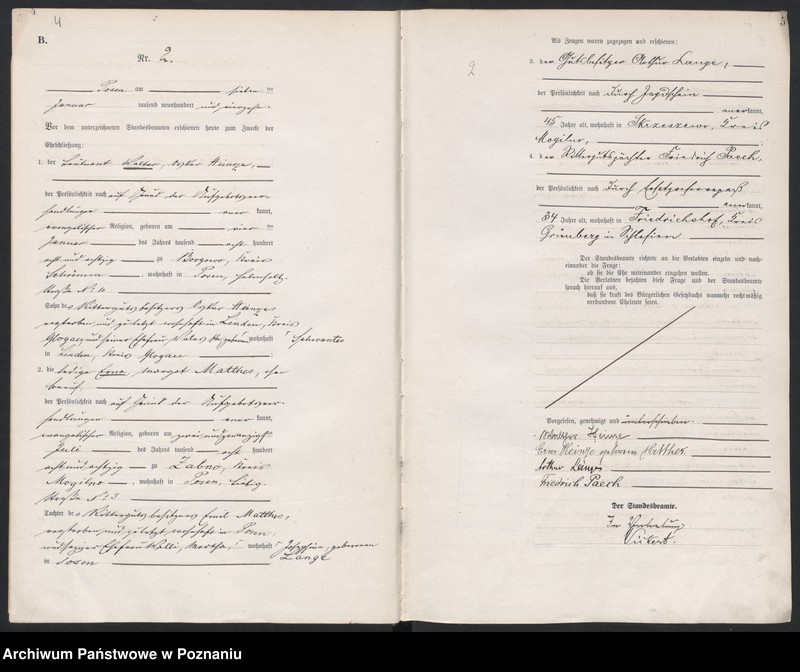 4
B.
Nr. 2.
Posen am sieben ten
Januar tausend neunhundert und vierzehn.
Vor dem unterzeichneten Standesbeamten erschienen heute zum Zwecke der
Eheschließung:
1. der Leutnant Walter
der Persönlichkeit nach auf Grund der Aufgebotsver-
handlungen aner kannt,
evangelischer Religion, geboren am vier ten
Januar des Jahres tausend acht hundert
acht und achtzig zu Kreis
Schrimm, wohnhaft in Posen,
Straße No
Sohn des Rittergutsbesitzers
verstorben und zuletzt wohnhaft in Linden, Kreis
Glogau, und seiner Ehefrau, geborenen wohnhaft
in Linden, Kreis Glogau
2. die ledige Erna, Margot Matthes, ohne
Beruf,
der Persönlichkeit nach auf Grund der Aufgebotsver-
handlungen aner kannt,
evangelischer Religion, geboren am zwei und zwanzigsten
Juli des Jahres tausend acht hundert
acht und achtzig zu Zabno, Kreis
Mogilno, wohnhaft in Posen,
Straße No 3
Tochter des Rittergutsbesitzers Emil Matthes,
verstorben und zuletzt wohnhaft in Posen,
und seiner Ehefrau Martha, Josephine, geborenen
Lange wohnhaft
in Posen
2.
Als Zeugen waren zugezogen und erschienen:
3. der Gutsbesitzer Arthur Lange,
der Persönlichkeit nach durch Jagdschein
anerkannt,
45 Jahre alt, wohnhaft in Kreis
Mogilno,
4. der Rittergutspächter Friedrich Paech,
der Persönlichkeit nach durch
anerkannt,
34 Jahre alt, wohnhaft in Friedrichshof, Kreis
Grünberg in Schlesien
Der Standesbeamte richtete an die Verlobten einzeln und nach-
einander die Frage:
ob sie die Ehe miteinander eingehen wollen.
Die Verlobten bejahten diese Frage und der Standesbeamte
sprach hierauf aus,
daß sie kraft des Bürgerlichen Gesetzbuchs nunmehr rechtmäßig
verbundene Eheleute seien.
Vorgelesen, genehmigt und unterschrieben.
Walther Heinze
Erna Heinze geborene Matthes.
Arthur Lange
Friedrich Paech
Der Standesbeamte.
In Vertretung
Archiwum Państwowe w Poznaniu